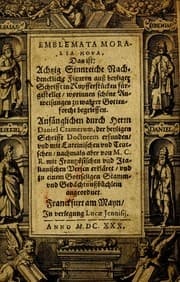 EMBLEMATA MORA-
LIA NOVA,
Das ist:
Achtzig Sinnreiche Nach-
denckliche Figuren auß heyliger
Schrifft in Kupfferstücken für-
gestellet, worinnen schöne An-
weisungen zu wahrer Gottes-
forcht begrieffen.
Anfänglichen durch Herrn
Daniel Cramerum, der heyligen
Schrifft Doctorem erfunden/
vnd mit Lateinischen vnd Teut-
schen / nachmals aber von M. C.
R. mit Frantzösischen vnd Ita-
lianischen Versen erkläret / vnd
zu einem Gottseligen Stamm-
vnd Gedächtnußbüchlein
angeordnet.
Franckfurt am Mayn/
In verlegung Lucæ Jennisij.
ANNO M.DC.XXX.